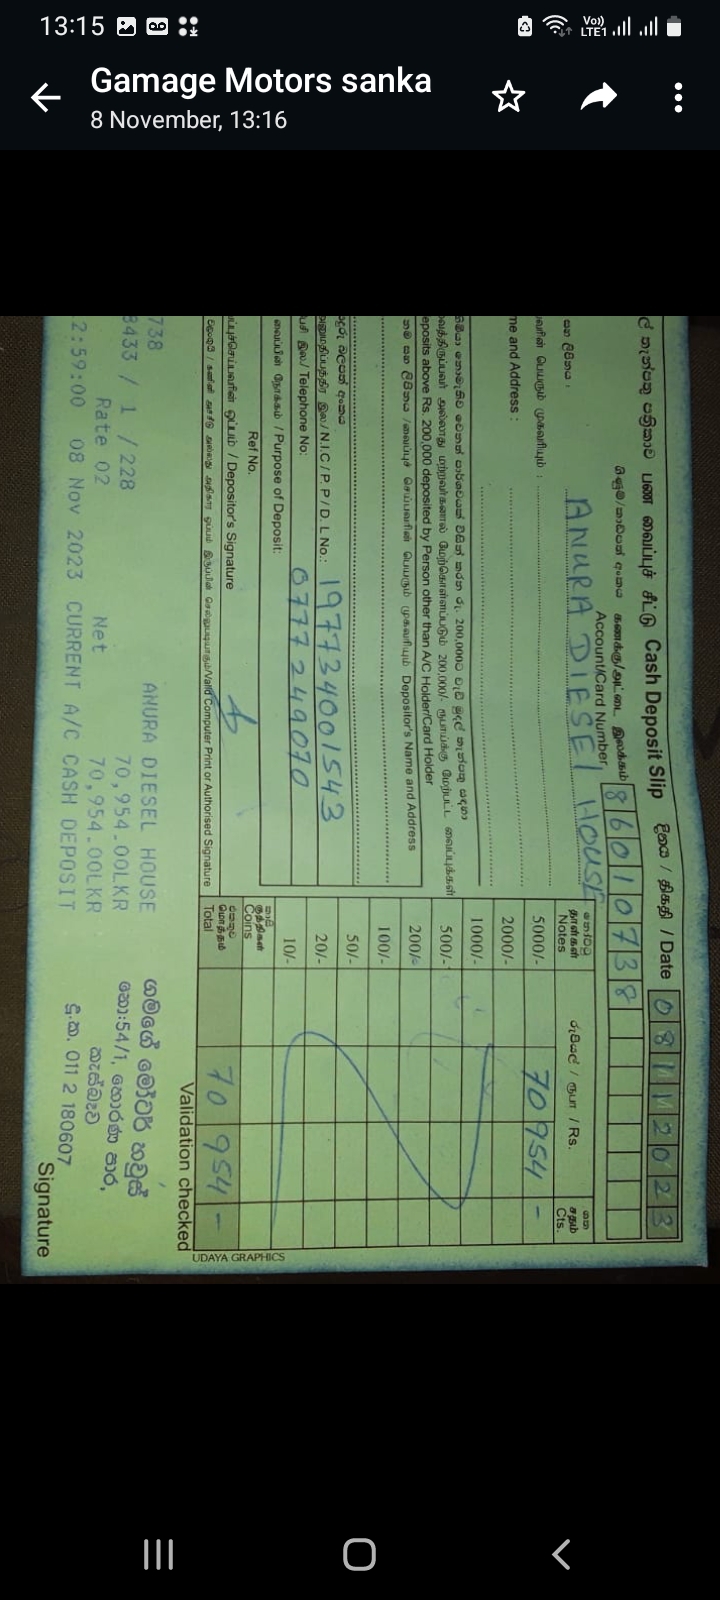 13:15
Vo)) LTE1
Gamage Motors sanka
8 November, 13:16
පත්‍රිකාව பண வைப்புச் சீட்டு Cash Deposit Slip දිනය / திகதி / Date 08112023
Account/Card Number 86010738
ANURA DIESEL HOUSE
me and Address :
eposits above Rs. 200,000 deposited by Person other than A/C Holder/Card Holder
Depositor's Name and Address
N.I.C / P.P / D.L No.: 197734001543
Telephone No: 0777249070
/ Purpose of Deposit:
Ref No.
/ Depositor's Signature
/Valid Computer Print or Authorised Signature
Notes
රුපියල් / ரூபா / Rs.
සත
சதம்
Cts.
5000/- 70 954 -
2000/-
1000/-
500/-
200/-
100/-
50/-
20/-
10/-
Coins
Total 70 954 -
UDAYA GRAPHICS
Validation checked
738 ANURA DIESEL HOUSE
8433 / 1 / 228 70,954.00LKR
Rate 02 Net 70,954.00LKR
2:59:00 08 Nov 2023 CURRENT A/C CASH DEPOSIT
ගමගේ මෝටර් හවුස්
නො:54/1, හොරණ පාර,
කැස්බෑව
දු.ක. 011 2 180607
Signature